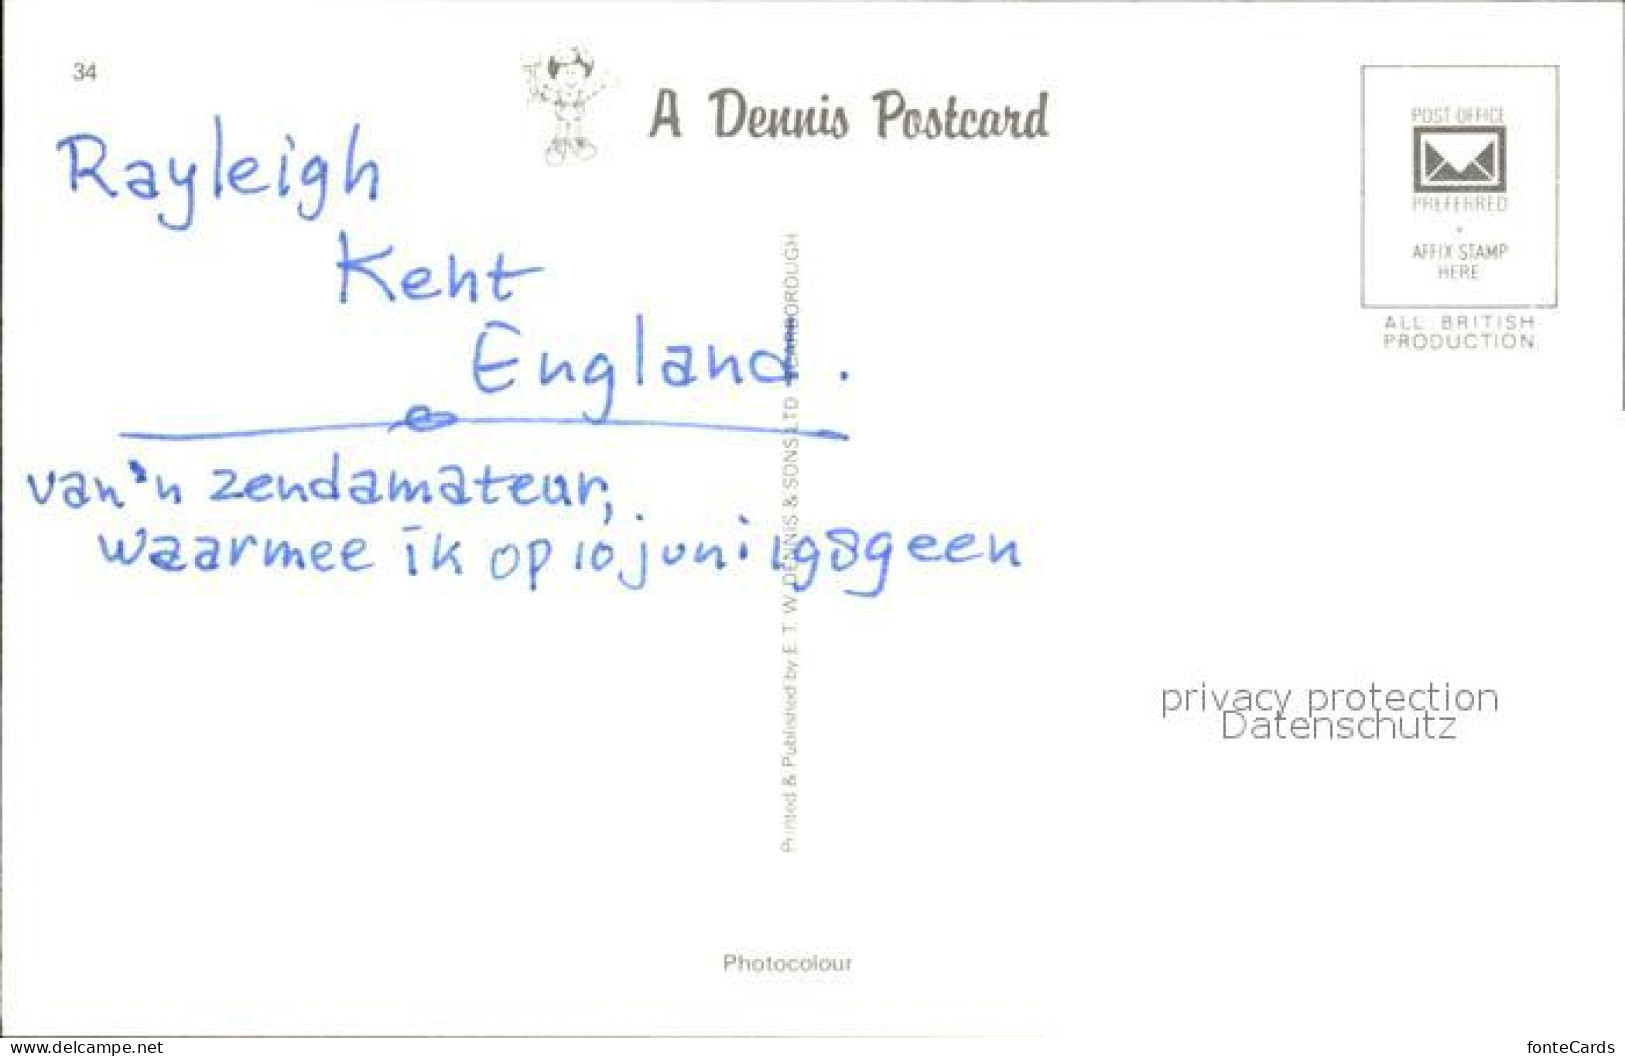 34
A Dennis Postcard
POST OFFICE
PREFERRED
AFFIX STAMP
HERE
ALL BRITISH
PRODUCTION
Rayleigh
Kent
England.
van 'n zendamateur,
waarmee ik op 10 juni 1989 een
Printed & Published by E. T. W. DENNIS & SONS LTD SCARBOROUGH
privacy protection
Datenschutz
Photocolour
www.delcampe.net
fonteCards